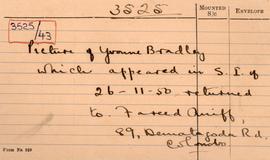 3525
MOUNTED S/C
ENVELOPE
3525/43
Picture of Yvonne Bradley
which appeared in S. I. of
26-11-50 returned
to. Fareed Uniff,
89, Dematagoda Rd,
Colombo.